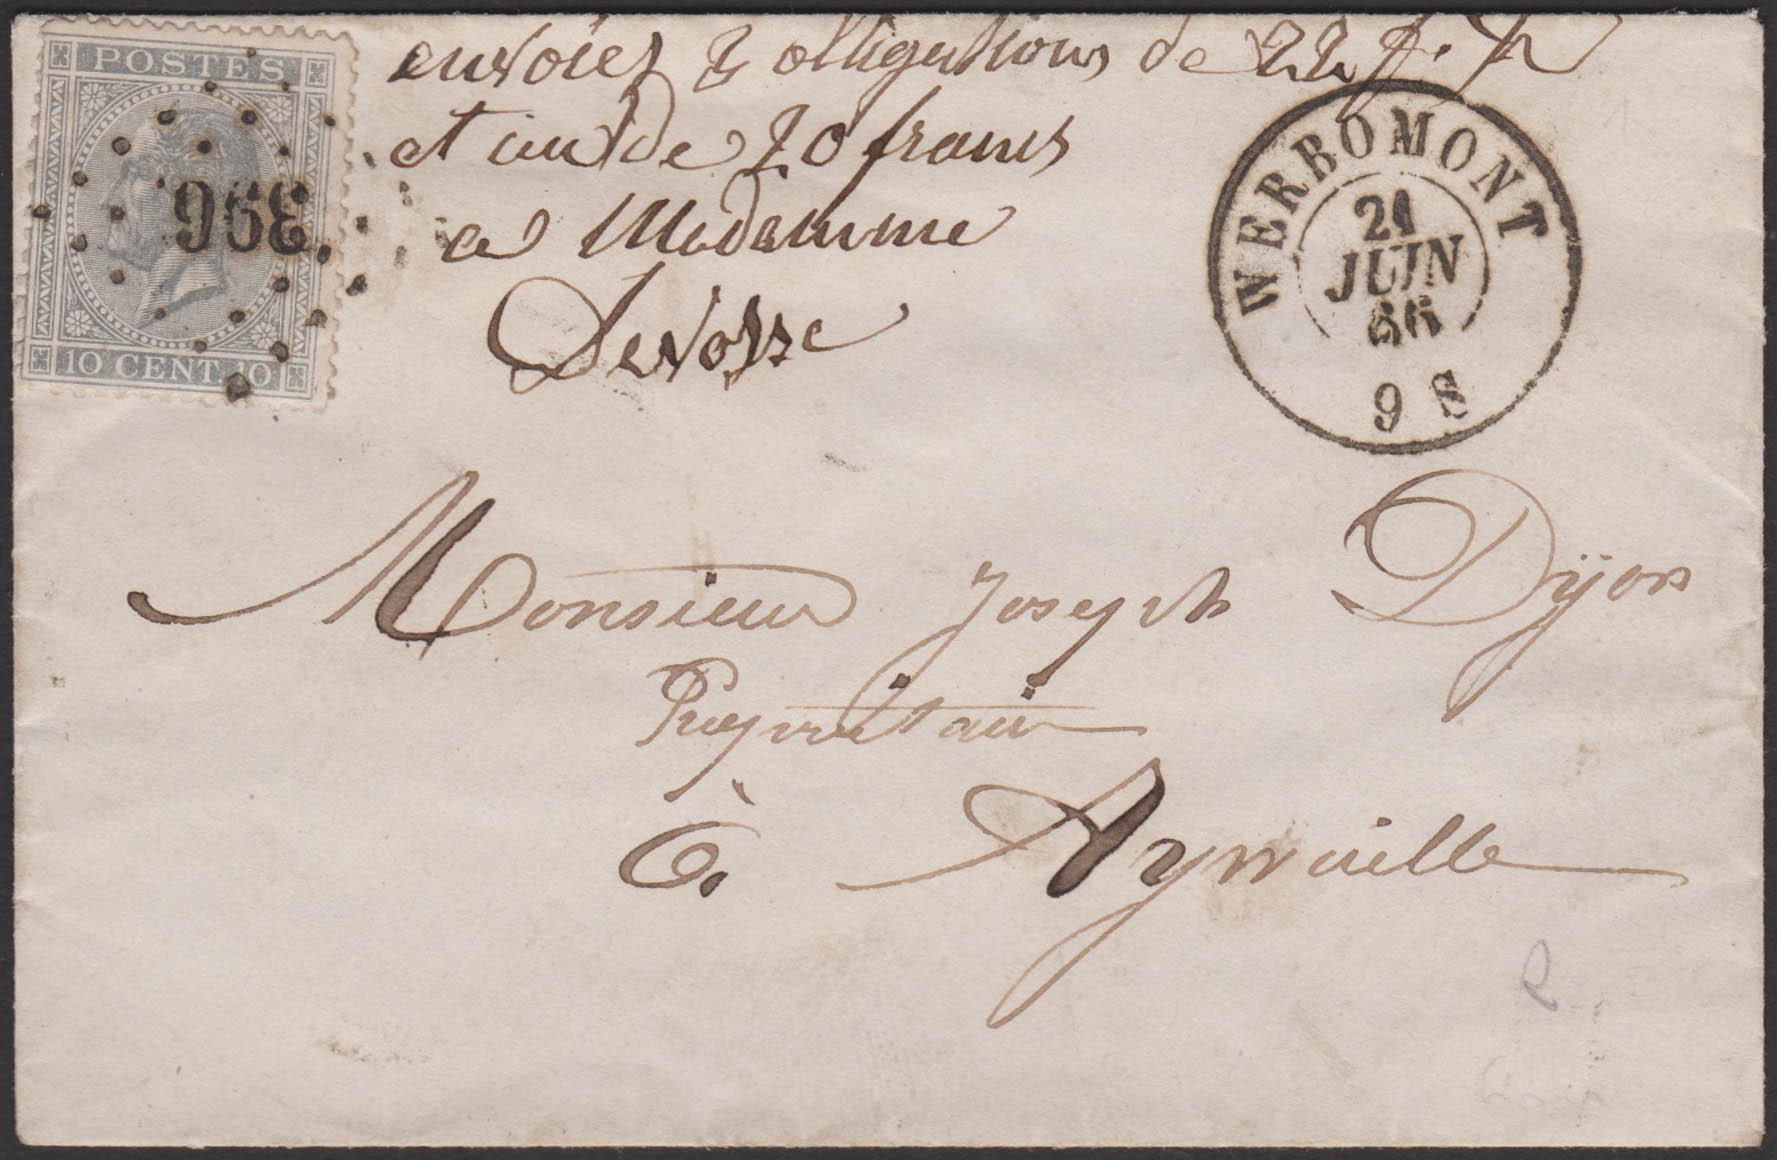 POSTES
396
10 CENT. 10
envoiez 2 obligations de 22 f.
et un de 20 francs
a Madamme
Devosse
WERBOMONT
21
JUIN
66
9 S
Monsieur Joseph Dÿon
Propriétaire
à Aywaille